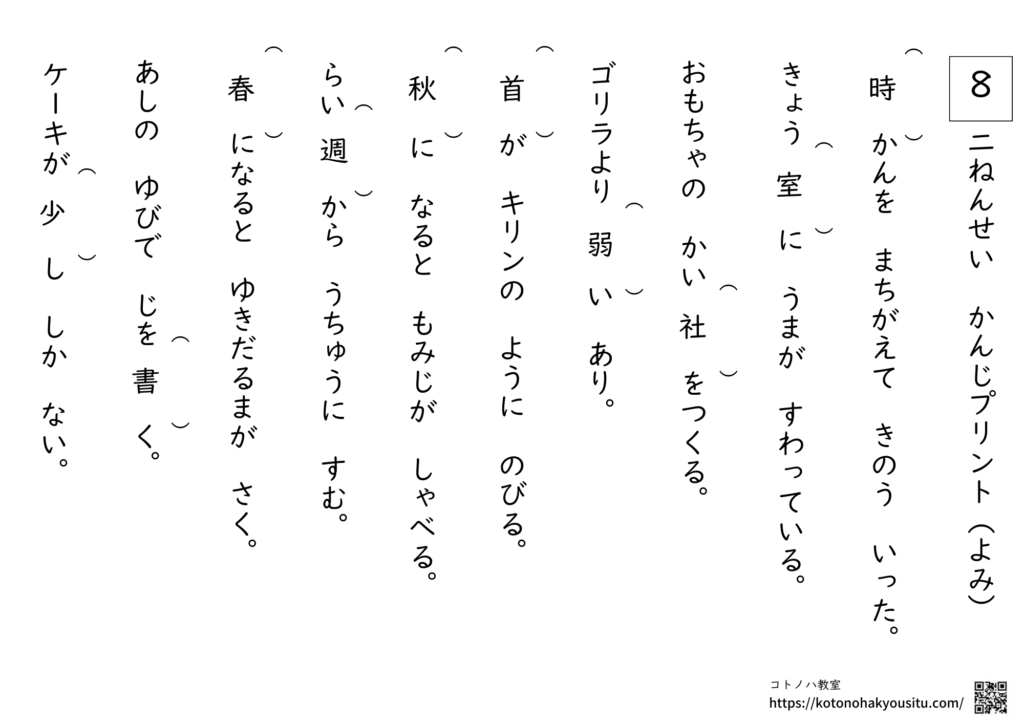 8 二ねんせい かんじプリント（よみ）
（時）かんを まちがえて きのう いった。
きょう（室）に うまが すわっている。
おもちゃの かい（社）をつくる。
ゴリラより（弱）い あり。
（首）が キリンの ように のびる。
（秋）に なると もみじが しゃべる。
らい（週）から うちゅうに すむ。
（春）になると ゆきだるまが さく。
あしの ゆびで じを（書）く。
ケーキが（少）し しか ない。
コトノハ教室
https://kotonohakyousitu.com/